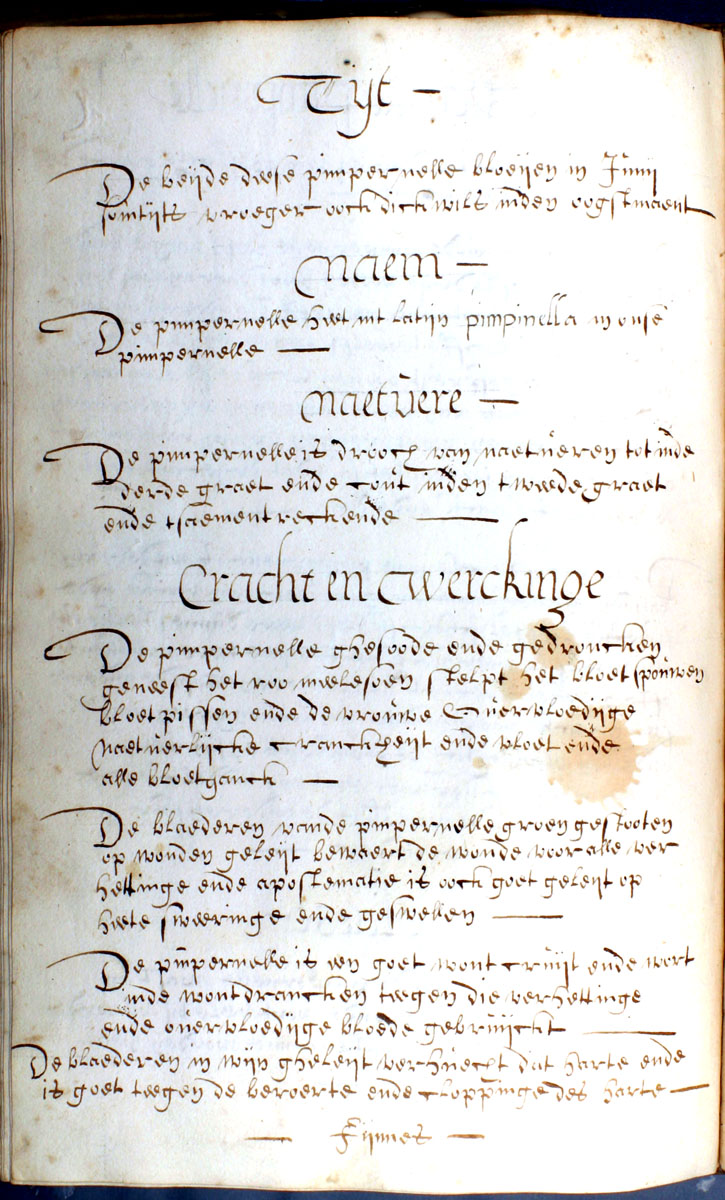 Tijt —
De beijde dese pimpernelle bloeijen in Junij
somtijts vroeger oock dickwils inden oogstmaent
Naem —
De pimpernelle heet int latijn pimpinella in onse
pimpernelle —
Naetuere —
De pimpernelle is drooch van naetueren tot inde
derde graet ende cout inden tweede graet
ende tsaementreckende —
Cracht en Werckinge
De pimpernelle ghesoode ende gedroncken
geneest het roo meelesoen stelpt het bloet spouwen
bloetpissen ende de vrouwe overvloedijge
naetuerlijcke cranckheijt ende vloet ende
alle bloetganck —
De blaederen vande pimpernelle groen gestooten
op wonden geleijt bewaert de wonde voor alle ver
hettinge ende apostematie is oock goet geleijt op
heete sweeringe ende geswellen —
De pimpernelle is een goet wont cruijt ende wort
inde wontdrancken teegen die verhettinge
ende overvloedijge bloede gebruijckt —
De blaederen in wijn gheleijt verhuecht dat harte ende
is goet teegen de beroerte ende cloppinge des harte —
— Fijnnes —